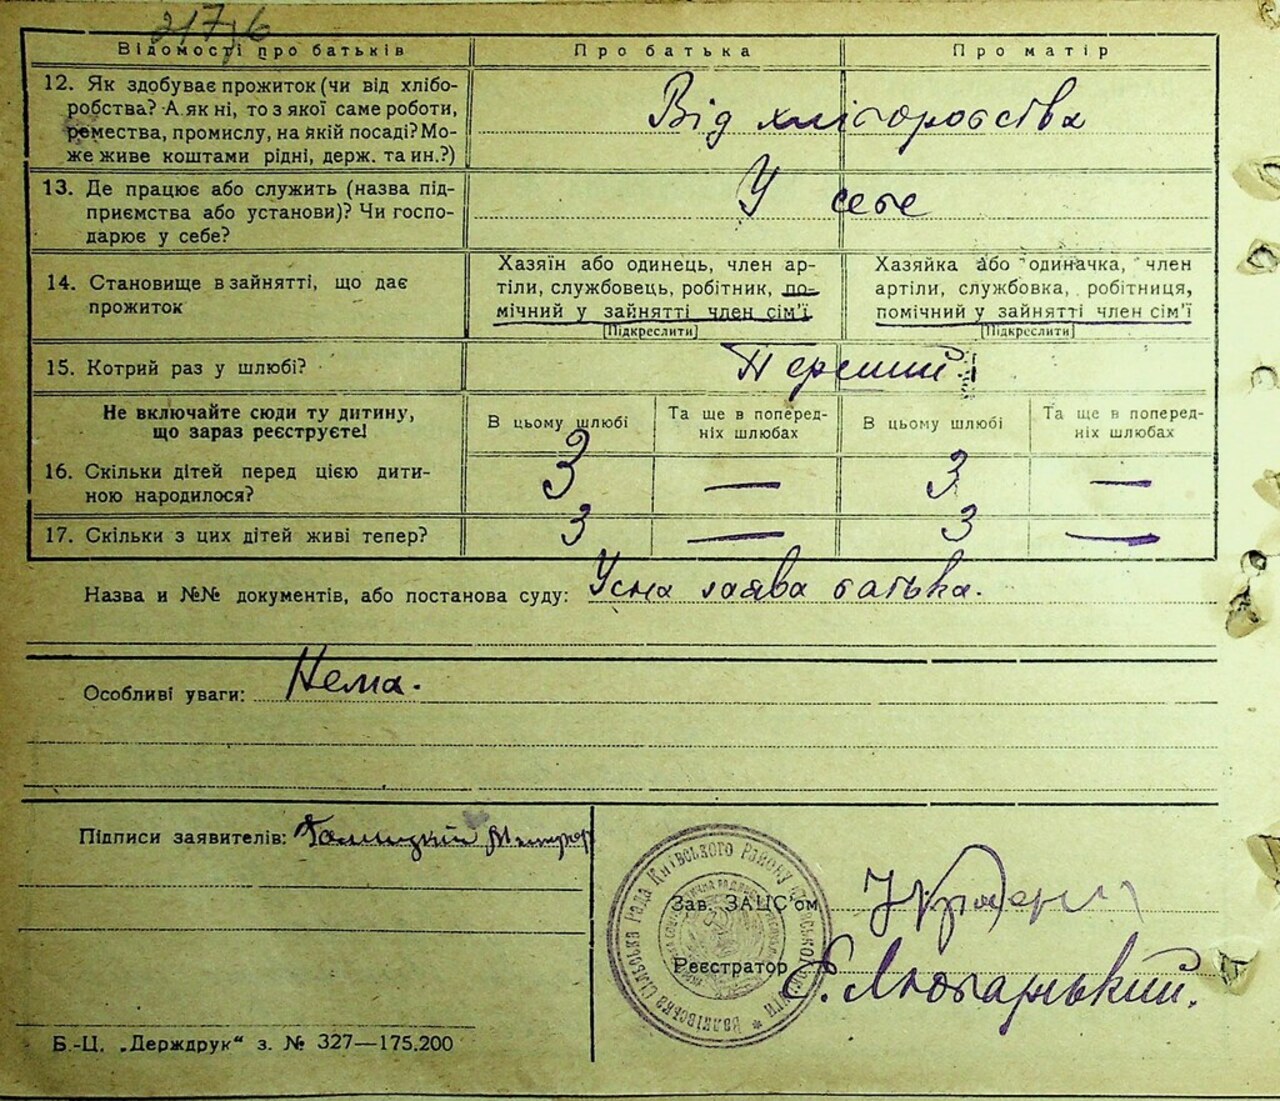 217/6
Відомості про батьків Про батька Про матір
12. Як здобуває прожиток (чи від хлібо-
робства? А як ні, то з якої саме роботи,
ремества, промислу, на якій посаді? Мо-
же живе коштами рідні, держ. та ин.?)
Від хліборобства
13. Де працює або служить (назва під-
приємства або установи)? Чи госпо-
дарює у себе?
У себе
14. Становище в зайнятті, що дає
прожиток
Хазяїн або одинець, член ар-
тіли, службовець, робітник, по-
мічний у зайнятті член сім'ї
[Підкреслити]
Хазяйка або одиначка, член
артіли, службовка, робітниця,
помічний у зайнятті член сім'ї
[Підкреслити]
15. Котрий раз у шлюбі?
Перший
Не включайте сюди ту дитину,
що зараз реєструєте!
В цьому шлюбі
Та ще в поперед-
ніх шлюбах
В цьому шлюбі
Та ще в поперед-
ніх шлюбах
16. Скільки дітей перед цією дити-
ною народилося?
3 — 3 —
17. Скільки з цих дітей живі тепер?
3 — 3 —
Назва и №№ документів, або постанова суду: Усна заява батька.
Особливі уваги: Нема.
Підписи заявителів:
Зав. ЗАЦС'ом
Реєстратор Є. Любарський.
Сільська Рада Київського Району
Б.-Ц. „Держдрук" з. № 327—175.200